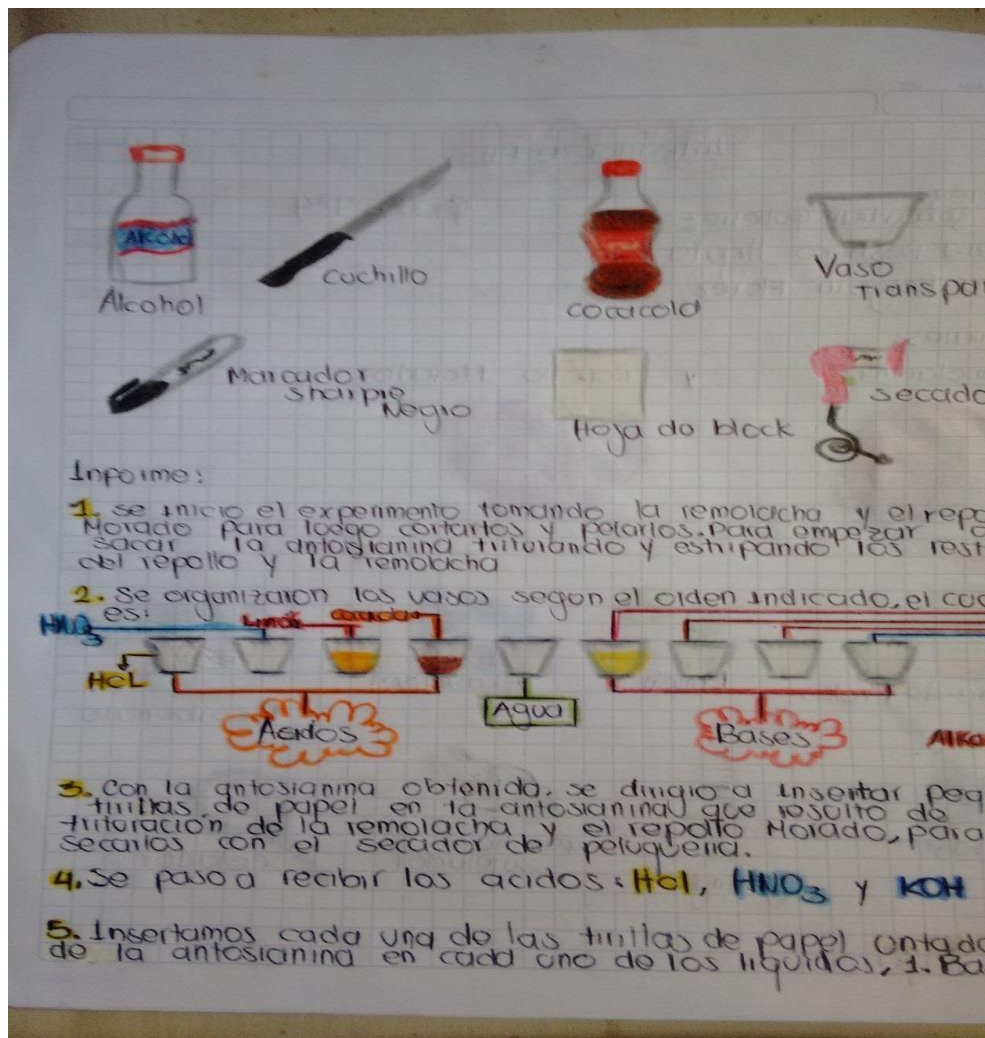 Alcohol
Alcohol
cuchillo
cocacola
Vaso
Transpa
Marcador
sharpie
Negro
Hoja de block
secado
Informe:
1. se inicio el experimento tomando la remolacha y el repo
Morado para luego cortarlos y pelarlos. Para empezar a
sacar la antosianina triturando y estripando los rest
del repollo y la remolacha
2. Se organizaron los vasos segun el orden indicado, el cua
es:
HNO3 Limón cocacola
HCL
Agua
Acidos Bases
AlKo
3. Con la antosianina obtenida. se dirigio a insertar peq
tirillas de papel en la antosianina que resulto de
trituración de la remolacha y el repollo Morado, para
secarlos con el secador de peluqueria.
4. Se paso a recibir los acidos: Hcl, HNO3 y KOH
5. Insertamos cada una de las tirillas de papel untado
de la antosianina en cada uno de los liquidos, 1. Ba